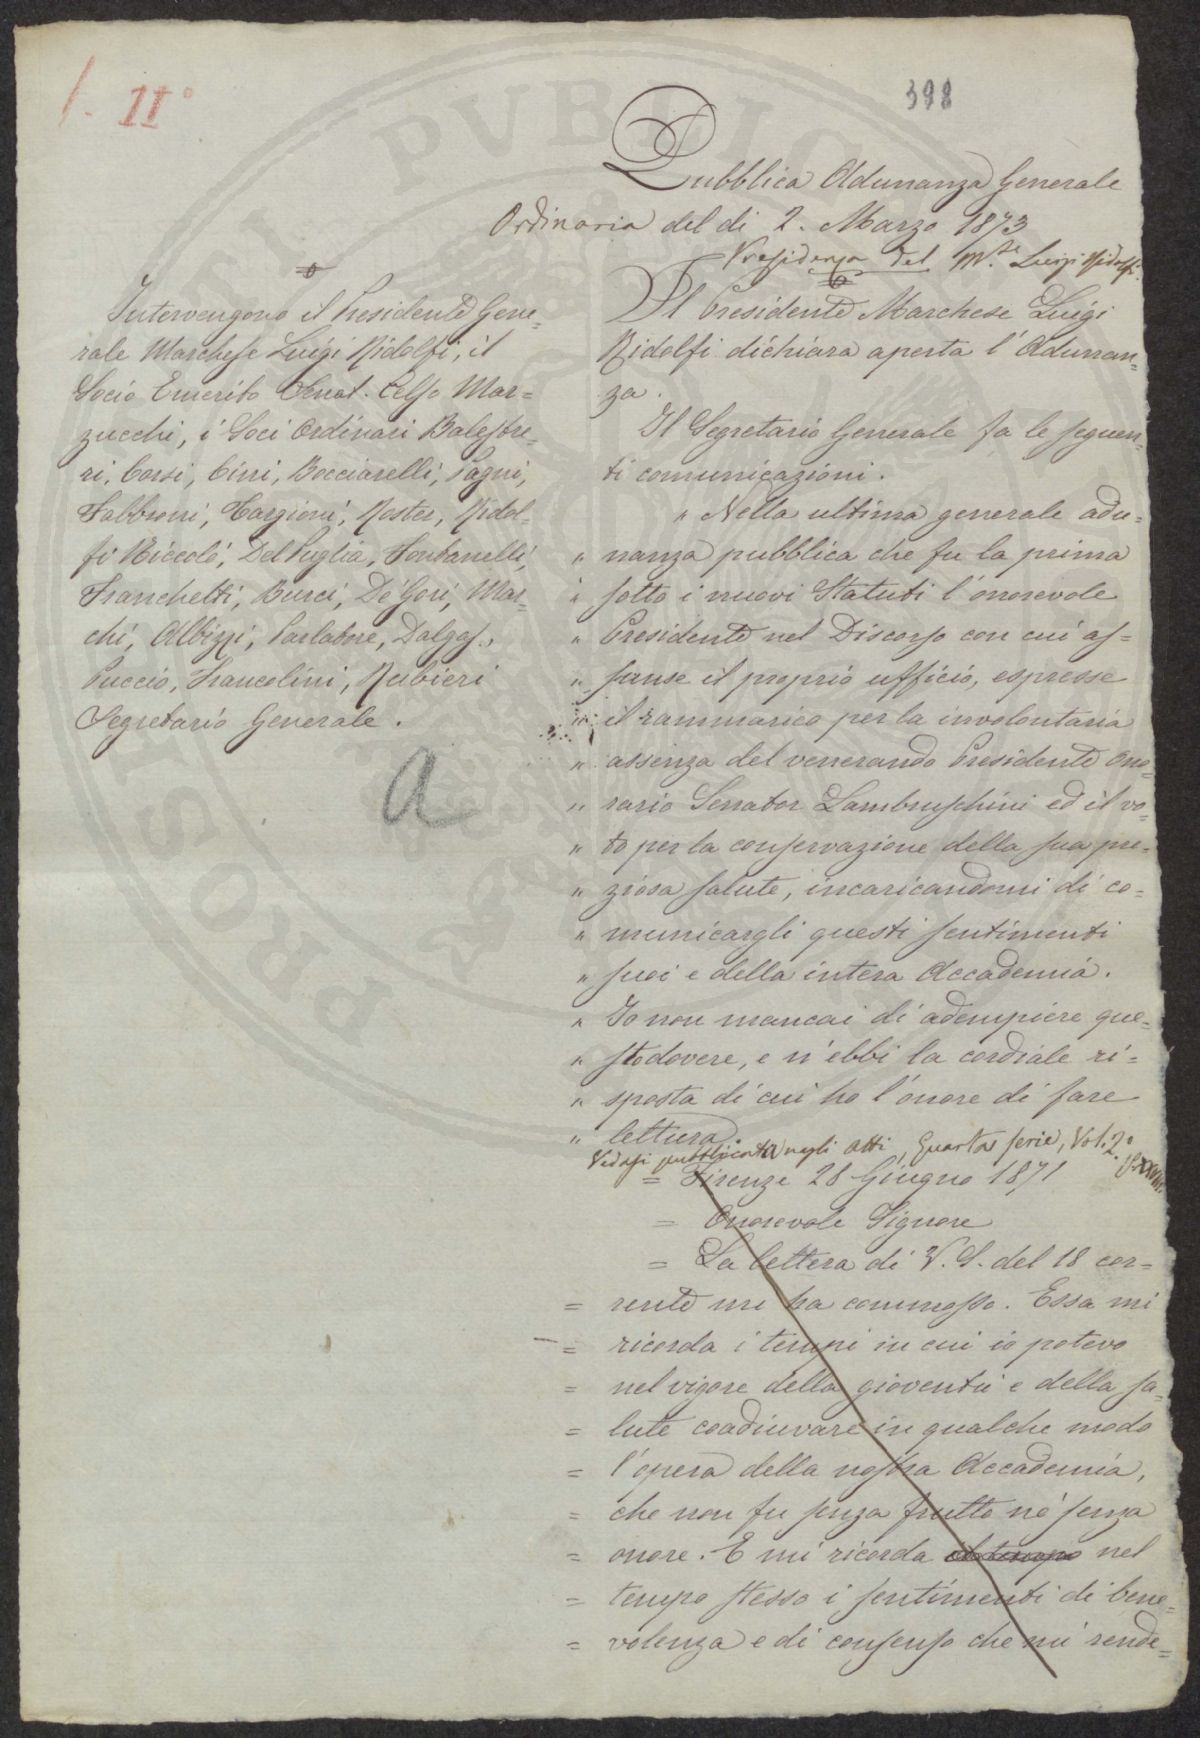 1. II°
398
Pubblica Adunanza Generale
Ordinaria del di 2. Marzo 1873
Presidenza del M.se Luigi Ridolfi.
Intervengono il Presidente Gene=
rale Marchese Luigi Ridolfi, il
Socio Emerito Senat. Celso Mar=
zucchi, i Soci Ordinari Balestre=
ri, Corsi, Cini, Bocciarelli, Pagni,
Fabbroni, Targioni, Roster, Ridol=
fi Niccolò, Del Puglia, Fontanelli,
Franchetti, Burci, De Gori, Mar=
chi, Albizzi, Parlatore, Dalgas,
Puccio, Francolini, Rubieri
Segretario Generale.
a
Il Presidente Marchese Luigi
Ridolfi dichiara aperta l'Adunan=
za.
Il Segretario Generale fa le seguen=
ti comunicazioni.
" Nella ultima generale adu=
" nanza pubblica che fu la prima
" sotto i nuovi Statuti l'onorevole
" Presidente nel Discorso con cui as=
" sunse il proprio ufficio, espresse
" il rammarico per la involontaria
" assenza del venerando Presidente Ono=
" rario Senator Lambruschini ed il vo=
" to per la conservazione della sua pre=
" ziosa salute, incaricandomi di co=
" municargli questi sentimenti
" suoi e della intera Accademia.
" Io non mancai di adempiere que=
" sto dovere, e n'ebbi la cordiale ri=
" sposta di cui ho l'onore di fare
" lettura
Vedasi pubblicata negli Atti, Quarta serie, Vol. 2°
= Firenze 28 Giugno 1871
= Onorevole Signore
= La lettera di V. S. del 18 cor=
= rente mi ha commosso. Essa mi
= ricorda i tempi in cui io potevo
= nel vigore della gioventù e della sa=
= lute coadiuvare in qualche modo
= l'opera della nostra Accademia,
= che non fu senza frutto nè senza
= onore. E mi ricorda nel
= tempo stesso i sentimenti di bene=
= volenza e di consenso che mi rende=